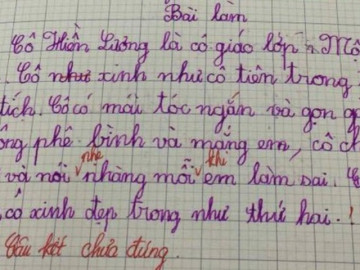 Bài làm
Cô Hiền Lương là cô giáo lớp 1 Mộ
. Cô như xinh như cô tiên trong
tích. Cô có mái tóc ngắn và gọn g
ông phê bình và mắng em, cô ch
và nói nhẹ nhàng mỗi khi em làm sai.
cô xinh đẹp trong như thứ hai.
Câu kết chưa đúng.